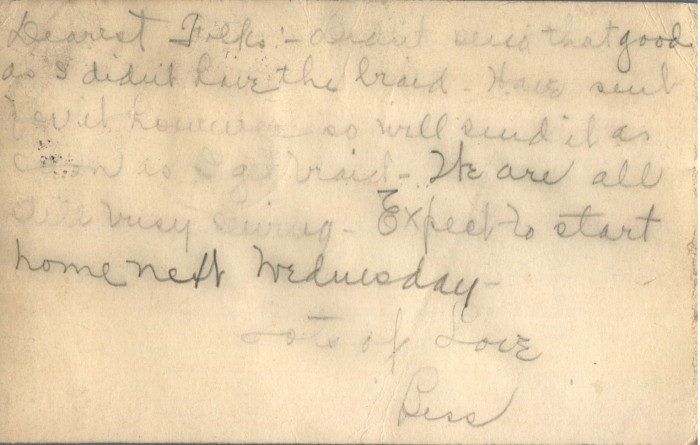 Dearest Folks:- didn't send that good
as I didn't have the braid - Have sent
for it however so will send it as
soon as I get braid - We are all
still busy sewing - Expect to start
home next Wednesday -
Lots of Love
Bess